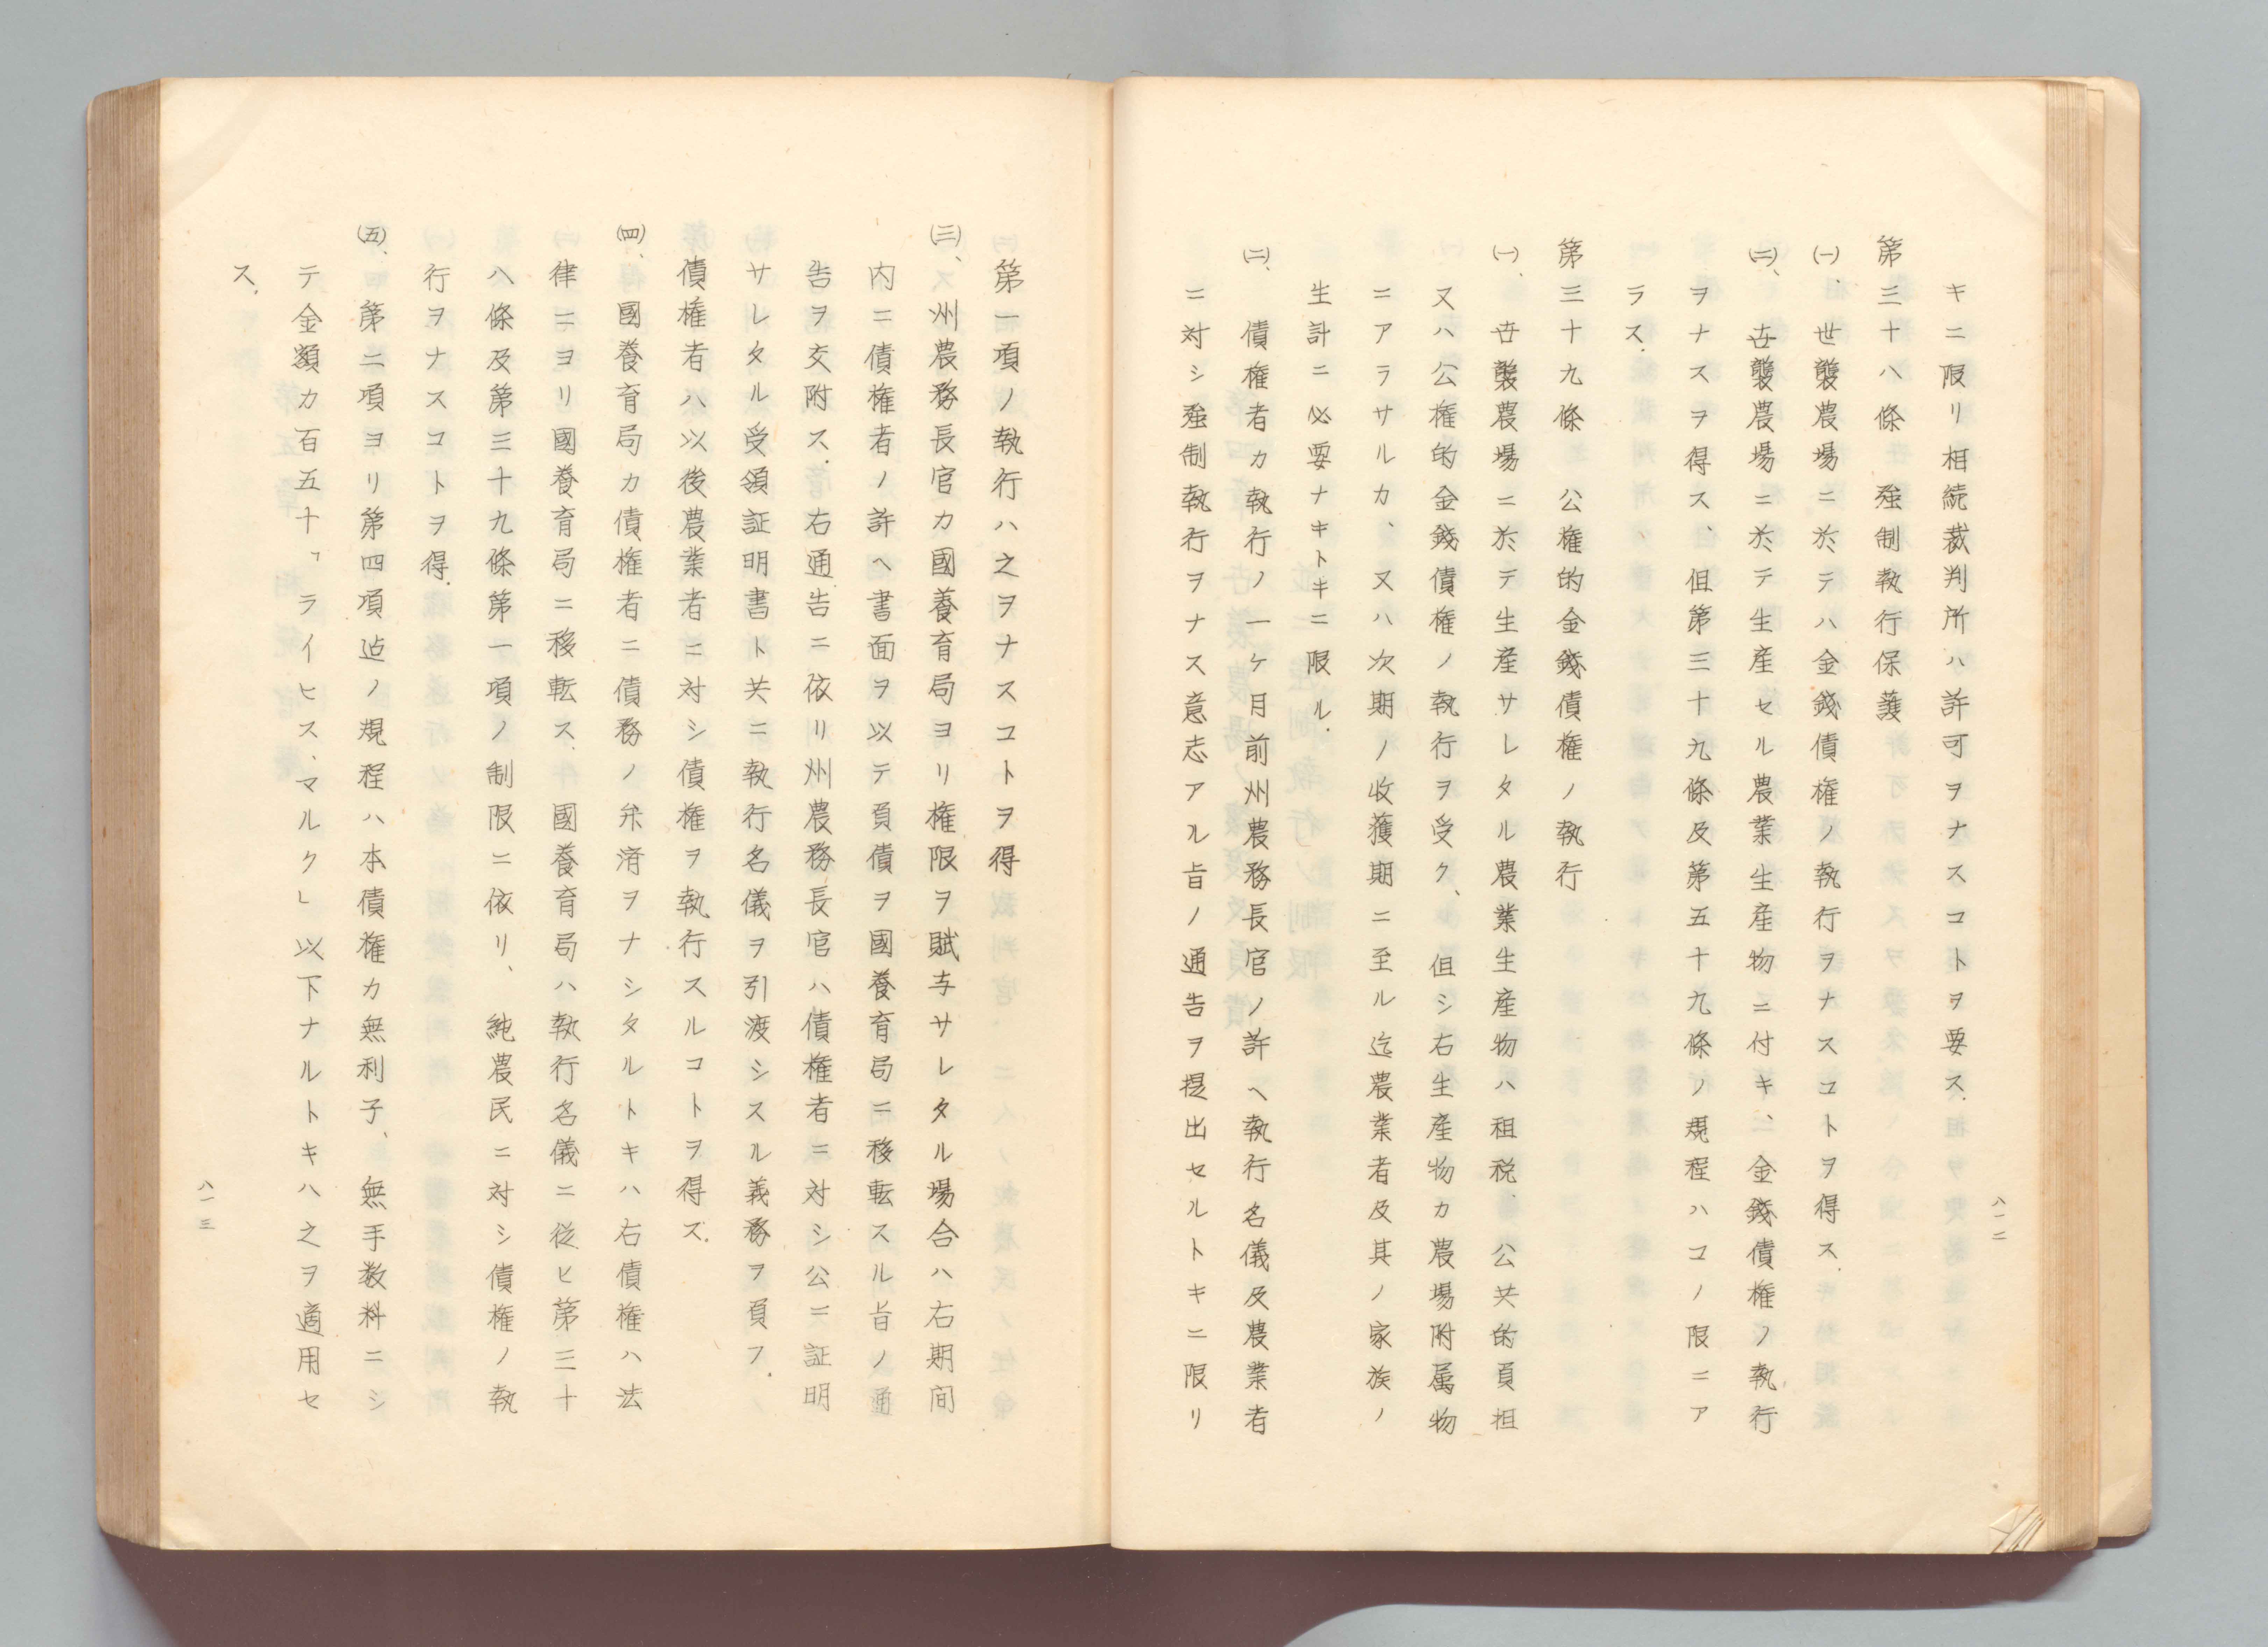 キニ限リ相続裁判所ハ許可ヲナスコトヲ要ス.
第三十八條　強制執行保護
(一)、世襲農場ニ於テハ金錢債権ノ執行ヲナスコトヲ得ス.
(二)、世襲農場ニ於テ生産セル農業生産物ニ付キ、金錢債権ノ執行
ヲナスヲ得ス、但第三十九條及第五十九條ノ規程ハコノ限ニア
ラス.
第三十九條　公権的金錢債権ノ執行
(一)、世襲農場ニ於テ生産サレタル農業生産物ハ租税、公共的負担
又ハ公権的金錢債権ノ執行ヲ受ク、但シ右生産物カ農場附属物
ニアラサルカ、又ハ次期ノ收獲期ニ至ル迄農業者及其ノ家族ノ
生計ニ必要ナキトキニ限ル.
(二)、債権者カ執行ノ一ケ月前州農務長官ノ許ヘ執行名儀及農業者
ニ対シ強制執行ヲナス意志アル旨ノ通告ヲ提出セルトキニ限リ
八一二
第一項ノ執行ハ之ヲナスコトヲ得
(三)、州農務長官カ國養育局ヨリ権限ヲ賦与サレタル場合ハ右期间
内ニ債権者ノ許ヘ書面ヲ以テ負債ヲ國養育局ニ移転スル旨ノ通
告ヲ交附ス.右通告ニ依リ州農務長官ハ債権者ニ対シ公ニ証明
サレタル受領証明書ト共ニ執行名儀ヲ引渡シスル義務ヲ負フ.
債権者ハ以後農業者ニ対シ債権ヲ執行スルコトヲ得ス.
(四)、國養育局カ債権者ニ債務ノ弁済ヲナシタルトキハ右債権ハ法
律ニヨリ國養育局ニ移転ス.國養育局ハ執行名儀ニ従ヒ第三十
八條及第三十九條第一項ノ制限ニ依リ、純農民ニ対シ債権ノ執
行ヲナスコトヲ得.
(五)、第二項ヨリ第四項迠ノ規程ハ本債権カ無利子、無手数料ニシ
テ金額カ百五十「ライヒス、マルク」以下ナルトキハ之ヲ適用セ
ス.
八一三